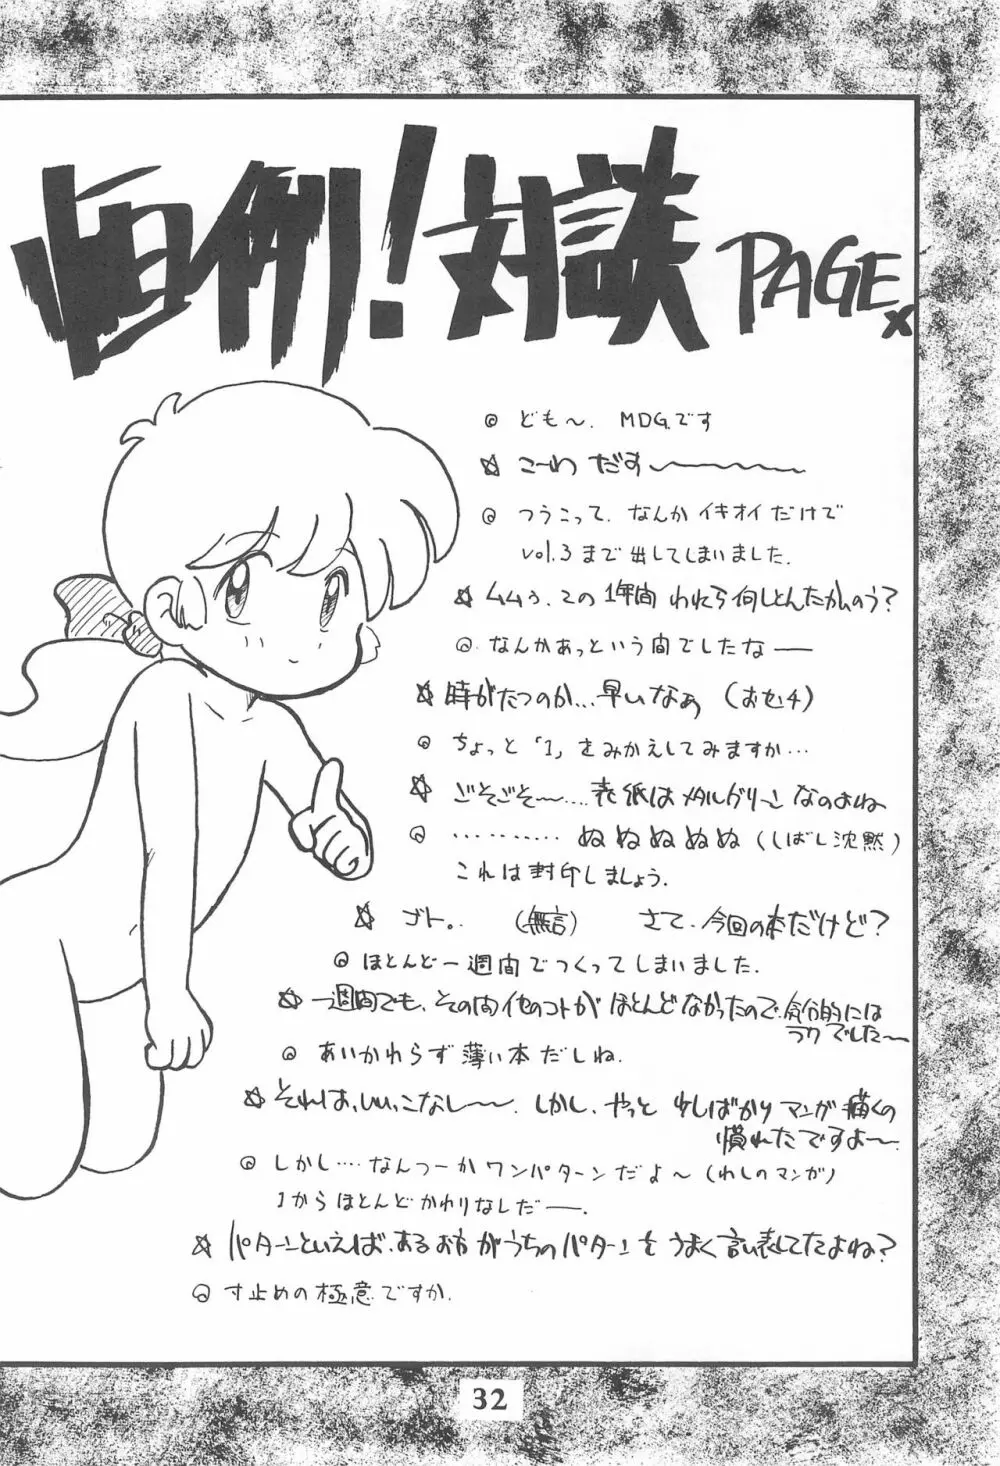 恒例!対談 PAGE
◎ ども〜. MDGです
☆ こーわ だす〜
◎ つうこって. なんか イキオイだけで
vol.3まで出してしまいました.
☆ ムムゥ. この 1年間 われら何しとんたかのう?
◎ なんかあっという間でしたなー
☆ 時がたつのか…早いなぁ (おせ4)
◎ ちょっと「1」をみかえしてみますか…
☆ ごそごそ〜… 表紙はメタルグリーン なのよね
◎ ………… ぬぬぬぬぬ (しばし沈黙)
これは封印しましょう.
☆ ゴト。. (無言) さて. 今回の本だけど?
◎ ほとんど一週間でつくってしまいました.
☆ 一週間でも、その間他のコトが ほとんどなかったので.気分的には
ラクでした〜
◎ あいかわらず 薄い本だしね.
☆ それは、いい、こなし〜. しかし、やっと 少しばかりマンガ描くの
慣れたですよ〜
◎ しかし…. なんつーか ワンパターンだよ〜 (わしのマンガ)
1からほとんどかわりなしだー.
☆ パターンといえば、あるお方がうちのパターンを うまく言い表してたよね?
◎ 寸止めの極意ですか.
32